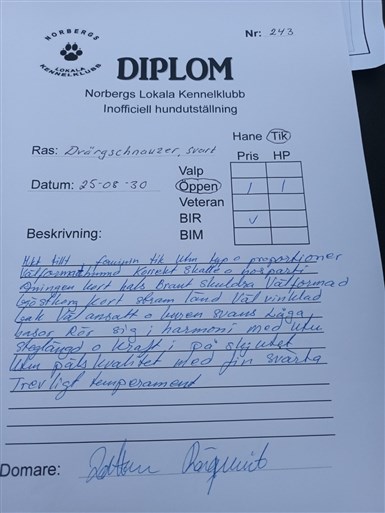 NORBERGS
LOKALA
KENNELKLUBB
Nr: 243
DIPLOM
Norbergs Lokala Kennelklubb
Inofficiell hundutställning
Hane Tik
Ras: Dvärgschnauzer, svart
Pris HP
Valp
Datum: 25-08-30
Öppen 1 1
Veteran
BIR v
BIM
Beskrivning:
feminin tik Utm typ o proportioner
Välformat huvud Korrekt skalle o nosparti
kort hals Brant skuldra Välformad
bröstkorg kort stram länd Välvinklad
bak Väl ansatt o buren svans Låga
hasor Rör sig i harmoni med utm
steglängd o kraft i påskjutet
Utm pälskvalitet med fin svärta
Trevligt temperament
Domare: